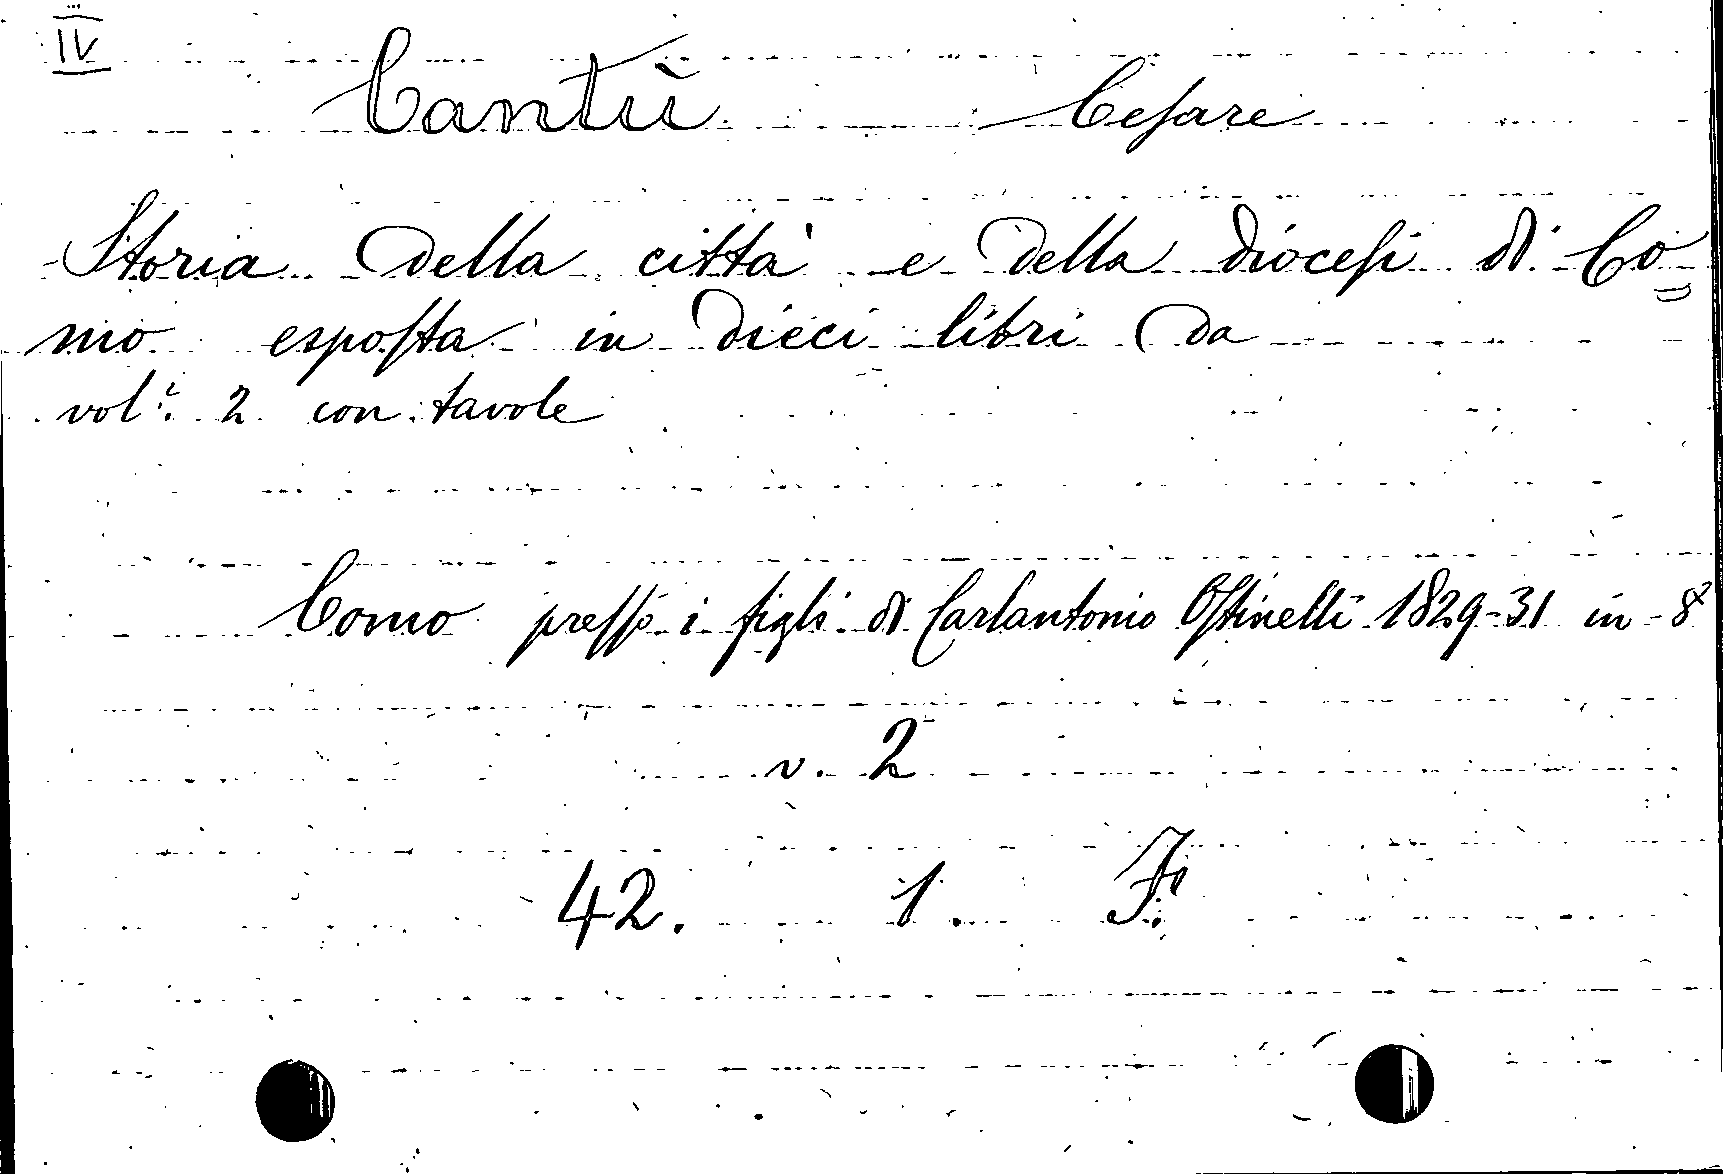 IV
Cantù Cesare
Storia della città e della diocesi di Co=
mo esposta in dieci libri da
vol.i 2 con tavole
Como presso i figli di Carlantonio Ostinelli 1829-31 in 8°
v. 2
42. 1. F.